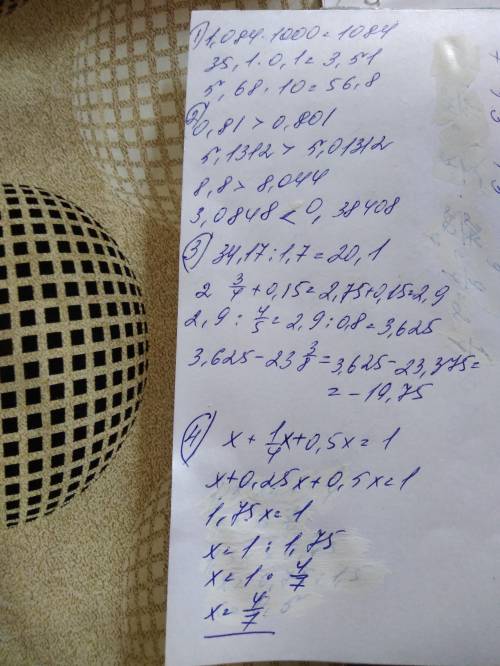 1) 1,084 · 1000 = 1084
35,1 · 0,1 = 3,51
5,68 · 10 = 56,8
2) 0,81 > 0,801
5,1312 > 5,01312
8,8 > 8,044
3,0848 < 0,38408
3) 34,17 : 1,7 = 20,1
2 3/4 + 0,15 = 2,75 + 0,15 = 2,9
2,9 : 4/5 = 2,9 : 0,8 = 3,625
3,625 - 23 3/8 = 3,625 - 23,375 =
= - 19,75
4) x + 1/4x + 0,5x = 1
x + 0,25x + 0,5x = 1
1,75x = 1
x = 1 : 1,75
x = 1 · 4/7
x = 4/7